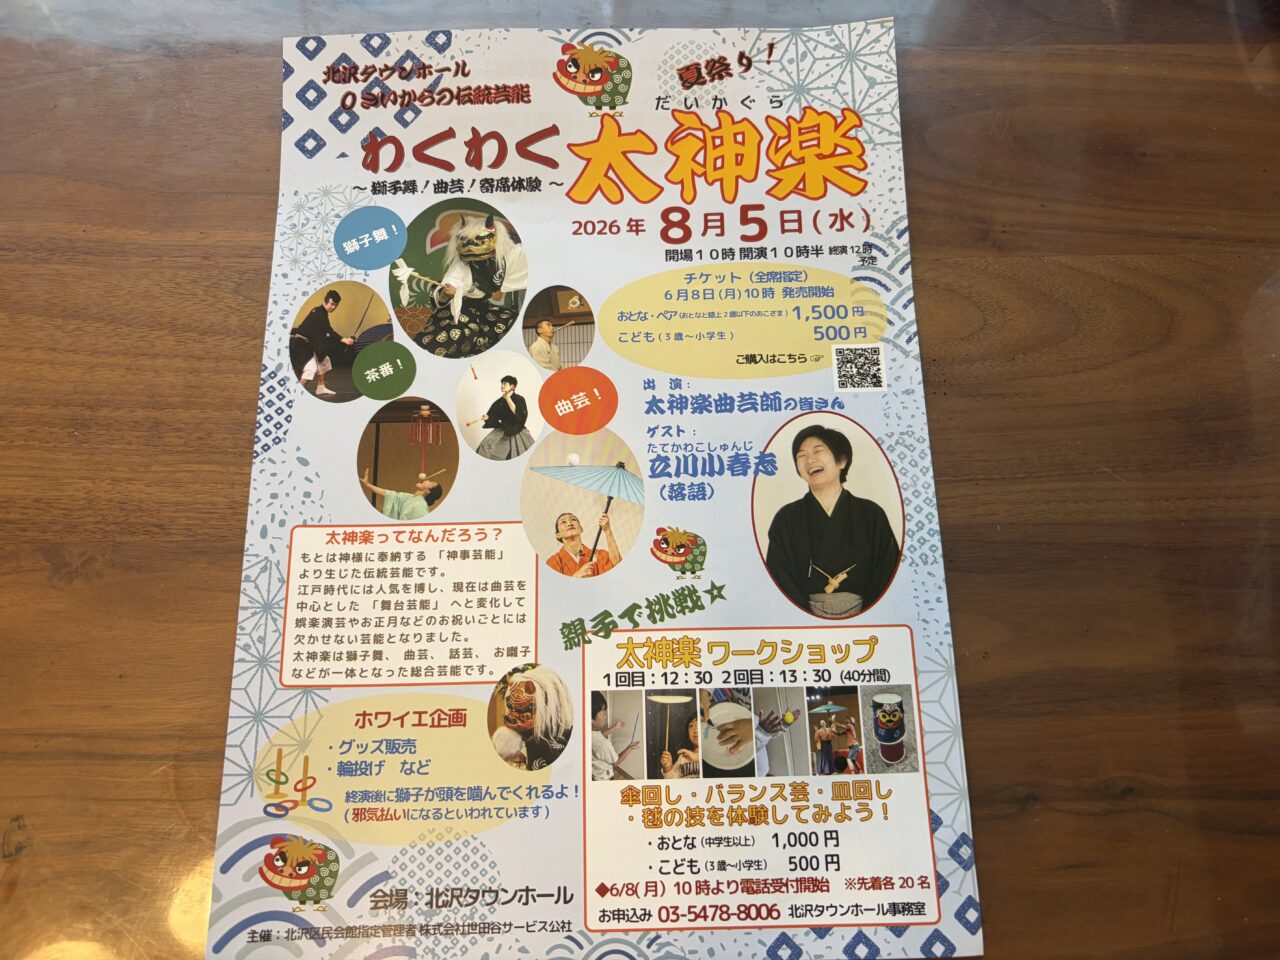 北沢タウンホール
0さいからの伝統芸能
夏祭り！
だいかぐら
わくわく太神楽
～獅子舞！曲芸！寄席体験～
2026年8月5日(水)
開場10時 開演10時半 終演12時予定
獅子舞！
茶番！
曲芸！
チケット（全席指定）
6月8日(月)10時 発売開始
おとな・ペア(おとなと膝上2歳以下のおこさま) 1,500円
こども(3歳～小学生) 500円
ご購入はこちら☞
出 演：
太神楽曲芸師の皆さん
ゲスト：
たてかわこしゅんじ
立川小春志
（落語）
太神楽ってなんだろう？
もとは神様に奉納する「神事芸能」
より生じた伝統芸能です。
江戸時代には人気を博し、現在は曲芸を
中心とした「舞台芸能」へと変化して
娯楽演芸やお正月などのお祝いごとには
欠かせない芸能となりました。
太神楽は獅子舞、曲芸、話芸、お囃子
などが一体となった総合芸能です。
親子で挑戦☆
太神楽ワークショップ
1回目：12：30 2回目：13：30 (40分間)
傘回し・バランス芸・皿回し
・毬の技を体験してみよう！
・おとな(中学生以上) 1,000円
・こども(3歳～小学生) 500円
◆6/8(月)10時より電話受付開始 ※先着各20名
お申込み 03-5478-8006 北沢タウンホール事務室
ホワイエ企画
・グッズ販売
・輪投げ など
終演後に獅子が頭を噛んでくれるよ！
(邪気払いになるといわれています)
会場：北沢タウンホール
主催：北沢区民会館指定管理者 株式会社世田谷サービス公社